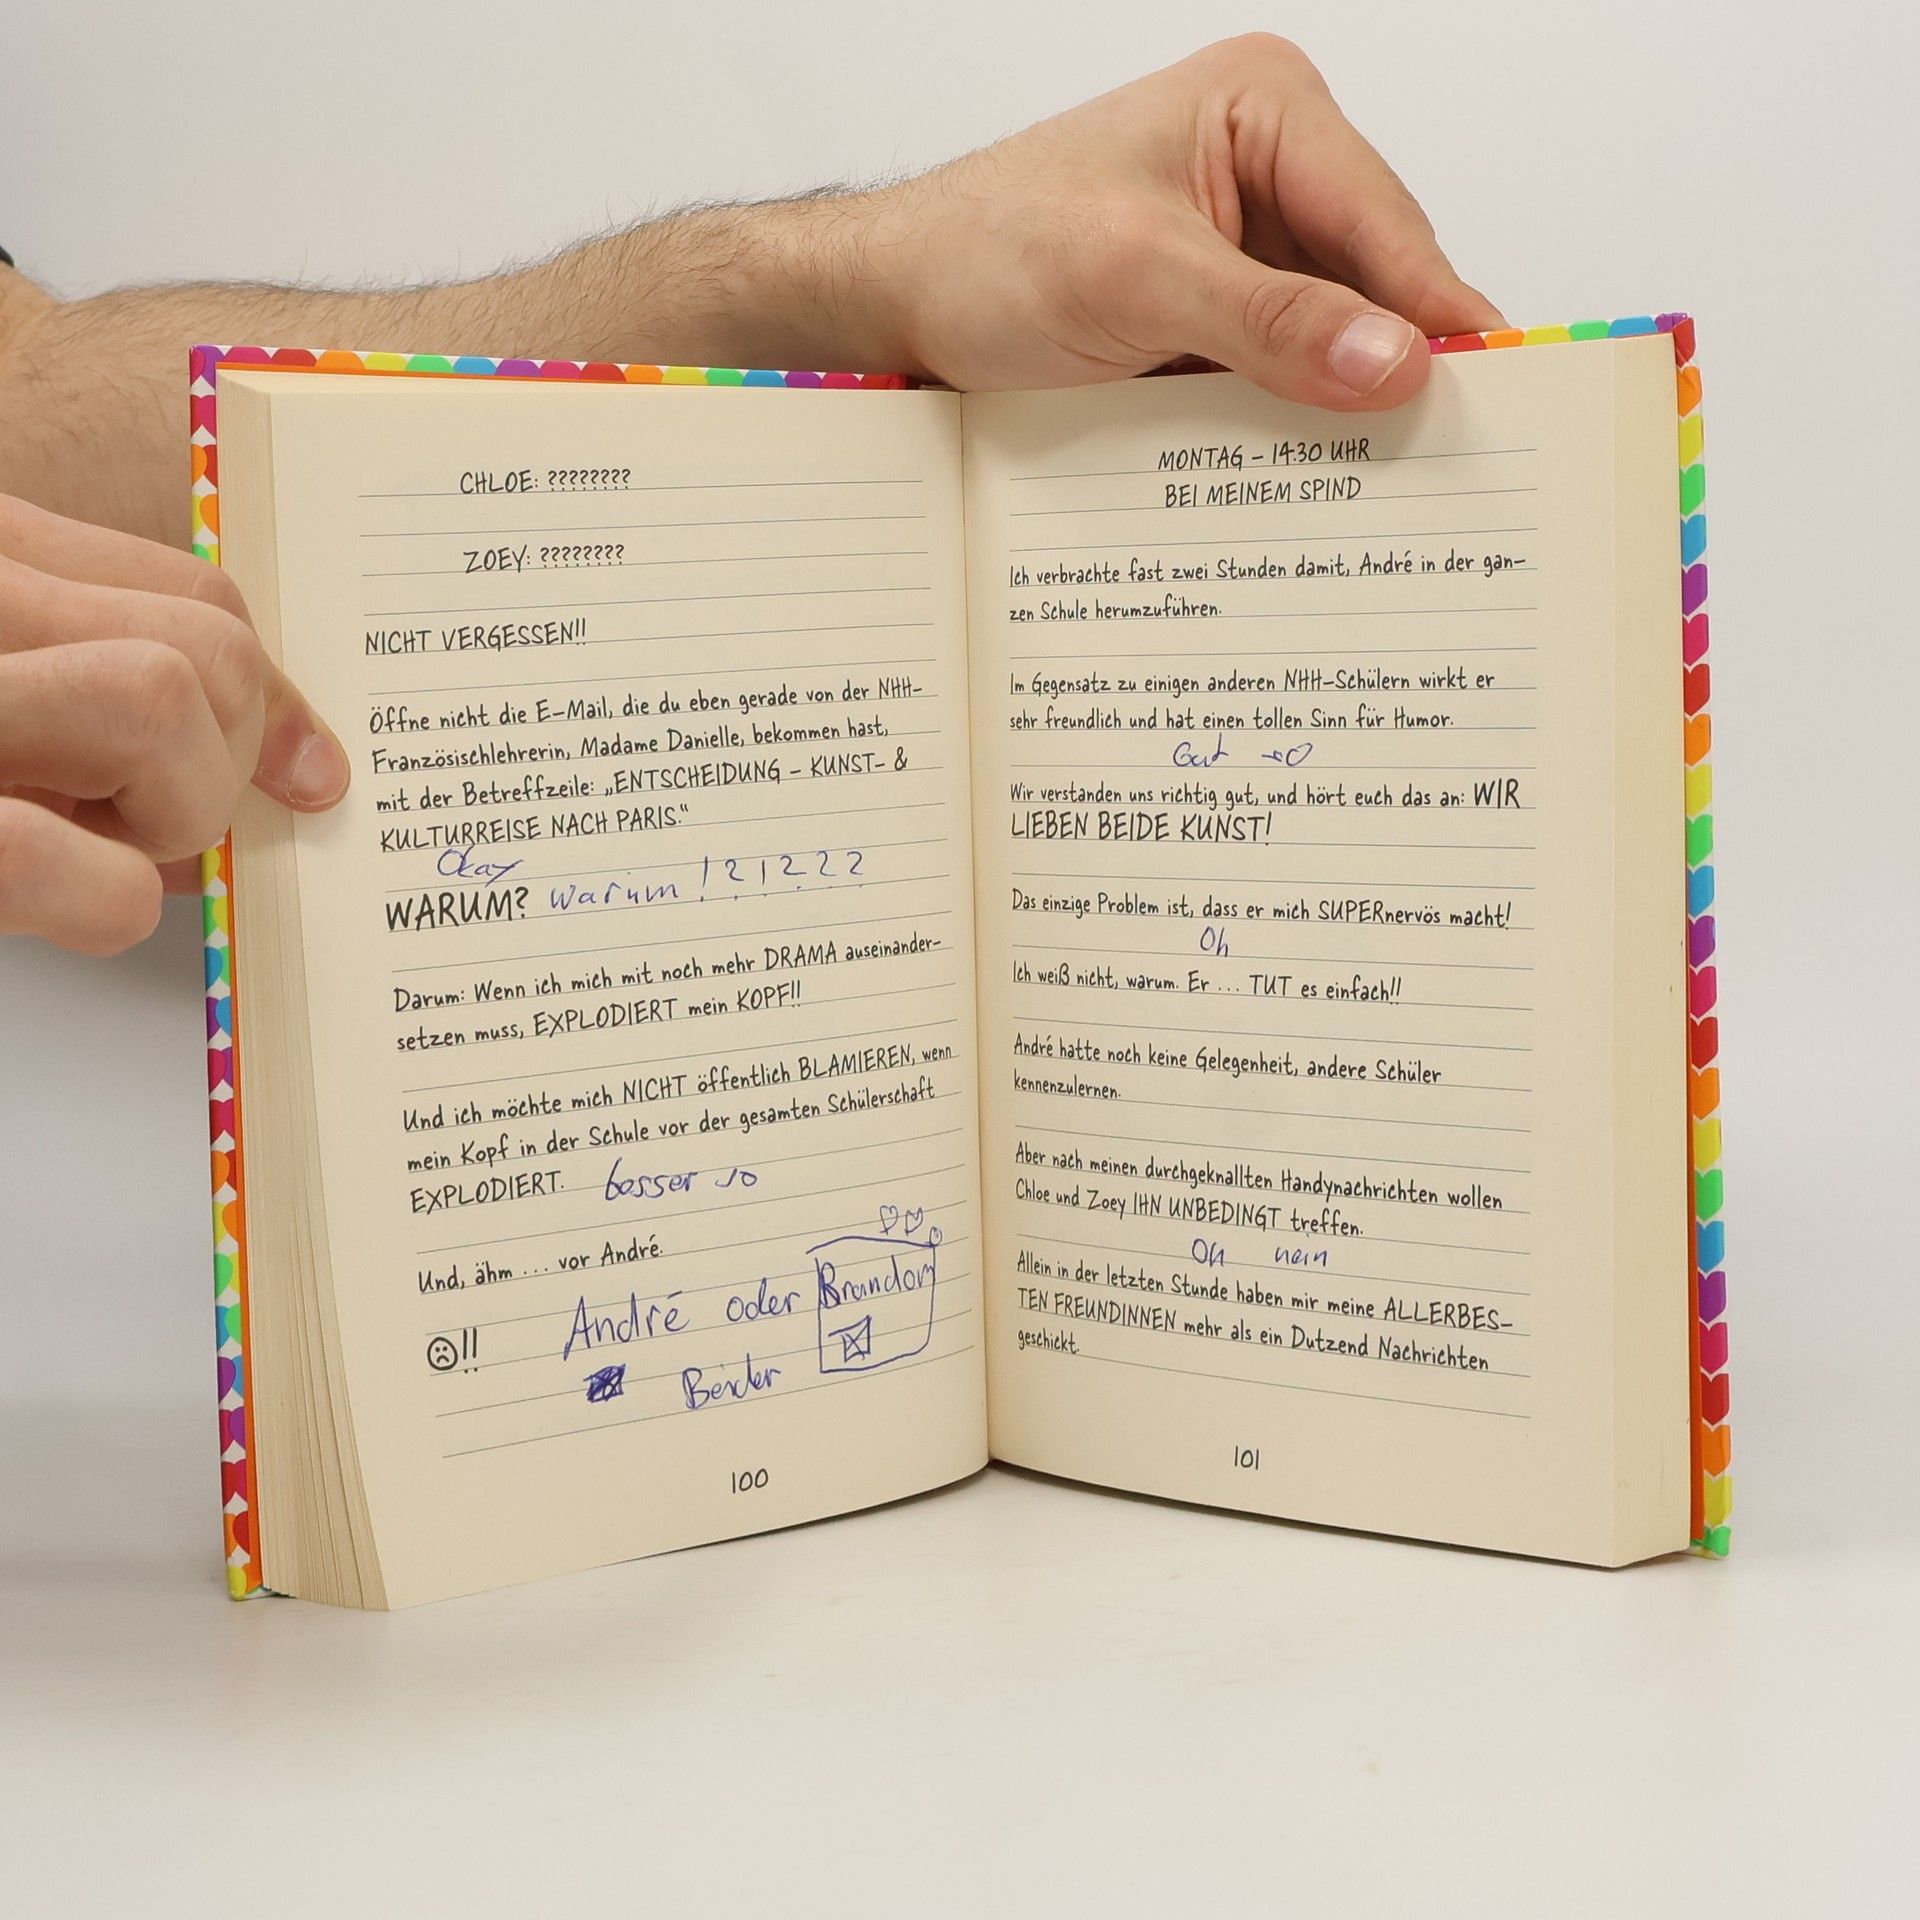 CHLOE: ????????
ZOEY: ????????
NICHT VERGESSEN!!
Öffne nicht die E-Mail, die du eben gerade von der NHH-
Französischlehrerin, Madame Danielle, bekommen hast,
mit der Betreffzeile: „ENTSCHEIDUNG – KUNST- &
KULTURREISE NACH PARIS.“
Okay
WARUM? Warum !?!???
Darum: Wenn ich mich mit noch mehr DRAMA auseinander-
setzen muss, EXPLODIERT mein KOPF!!
Und ich möchte mich NICHT öffentlich BLAMIEREN, wenn
mein Kopf in der Schule vor der gesamten Schülerschaft
EXPLODIERT. besser so
Und, ähm ... vor André.
André oder Brandon
☹!!
Beider
100
MONTAG – 14:30 UHR
BEI MEINEM SPIND
Ich verbrachte fast zwei Stunden damit, André in der gan-
zen Schule herumzuführen.
Im Gegensatz zu einigen anderen NHH-Schülern wirkt er
sehr freundlich und hat einen tollen Sinn für Humor.
Gut
Wir verstanden uns richtig gut, und hört euch das an: WIR
LIEBEN BEIDE KUNST!
Das einzige Problem ist, dass er mich SUPERnervös macht!
Oh
Ich weiß nicht, warum. Er ... TUT es einfach!!
André hatte noch keine Gelegenheit, andere Schüler
kennenzulernen.
Aber nach meinen durchgeknallten Handynachrichten wollen
Chloe und Zoey IHN UNBEDINGT treffen.
Oh nein
Allein in der letzten Stunde haben mir meine ALLERBES-
TEN FREUNDINNEN mehr als ein Dutzend Nachrichten
geschickt.
101